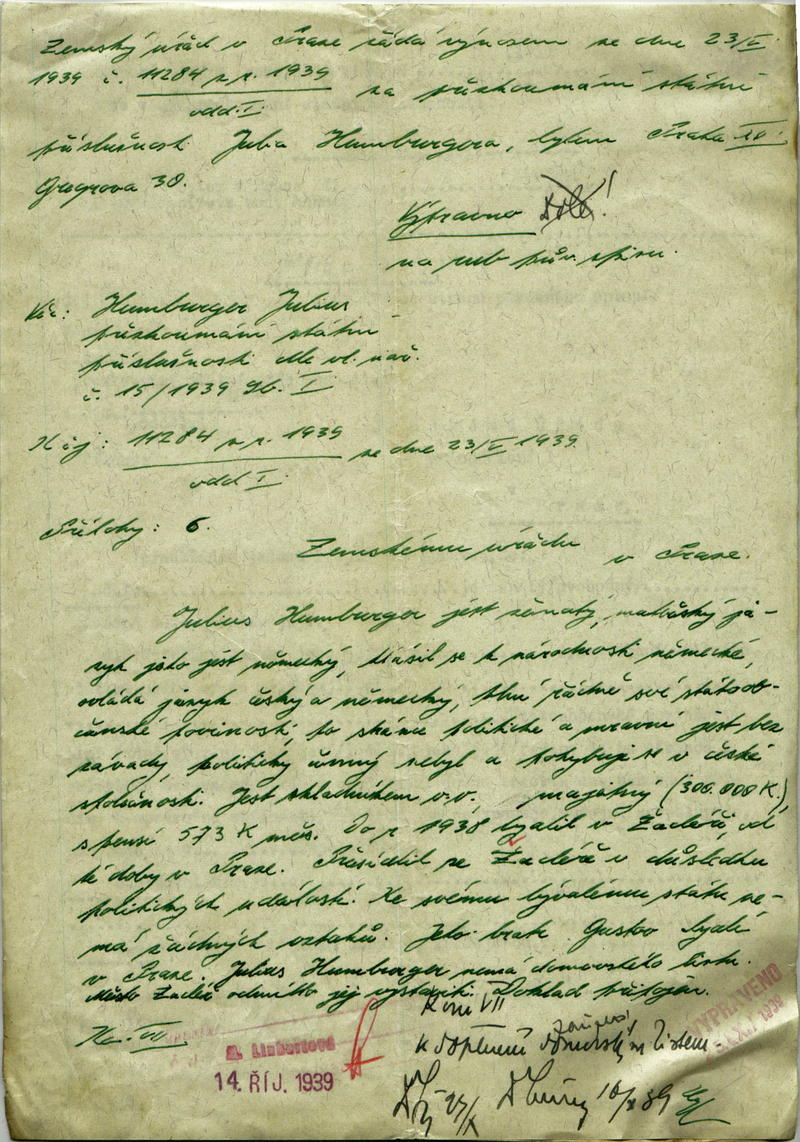 Zemský úřad v Praze žádá výnosem ze dne 23/V.
1939 č. 11284 z r. 1939
odd. I.
za přezkoumání státní
příslušnosti Julia Hamburgera, bytem Praha XII.
Grégrova 30.
Výpravno
na rub
Věc: Hamburger Julius
přezkoumání státní
příslušnosti dle vl. nař.
č. 15/1939 Sb. I
K čj: 11284 z r. 1939
odd I.
ze dne 23/V 1939.
Přílohy: 6.
Zemskému úřadu v Praze.
Julius Hamburger jest ženatý, mateřský ja-
zyk jeho jest německý, hlásil se k národnosti německé,
ovládá jazyk český a německý, plní řádně své státoob-
čanské povinosti, po stránce politické a mravní jest bez
závady, politicky činný nebyl a pohybuje se v české
společnosti. Jest skladníkem v.v., majetný (300.000 K.),
s pensí 573 K měs. Do r 1938 bydlil v Žacléři, od
té doby v Praze. Přesídlil ze Žacléře v důsledku
politických událostí. Ke svému bývalému státu ne-
má žádných vztahů. Jeho bratr Gustav bydlí
v Praze. Julius Hamburger nemá domovského listu.
Město Žacléř odmítlo jej vystaviti. Doklad připojen.
Ko. VII
Kom VII
A. Linhartová
14. ŘÍJ. 1939
k doplnění domovským listem.
VYPRAVENO
XI. 1939
27/X
16/X 39